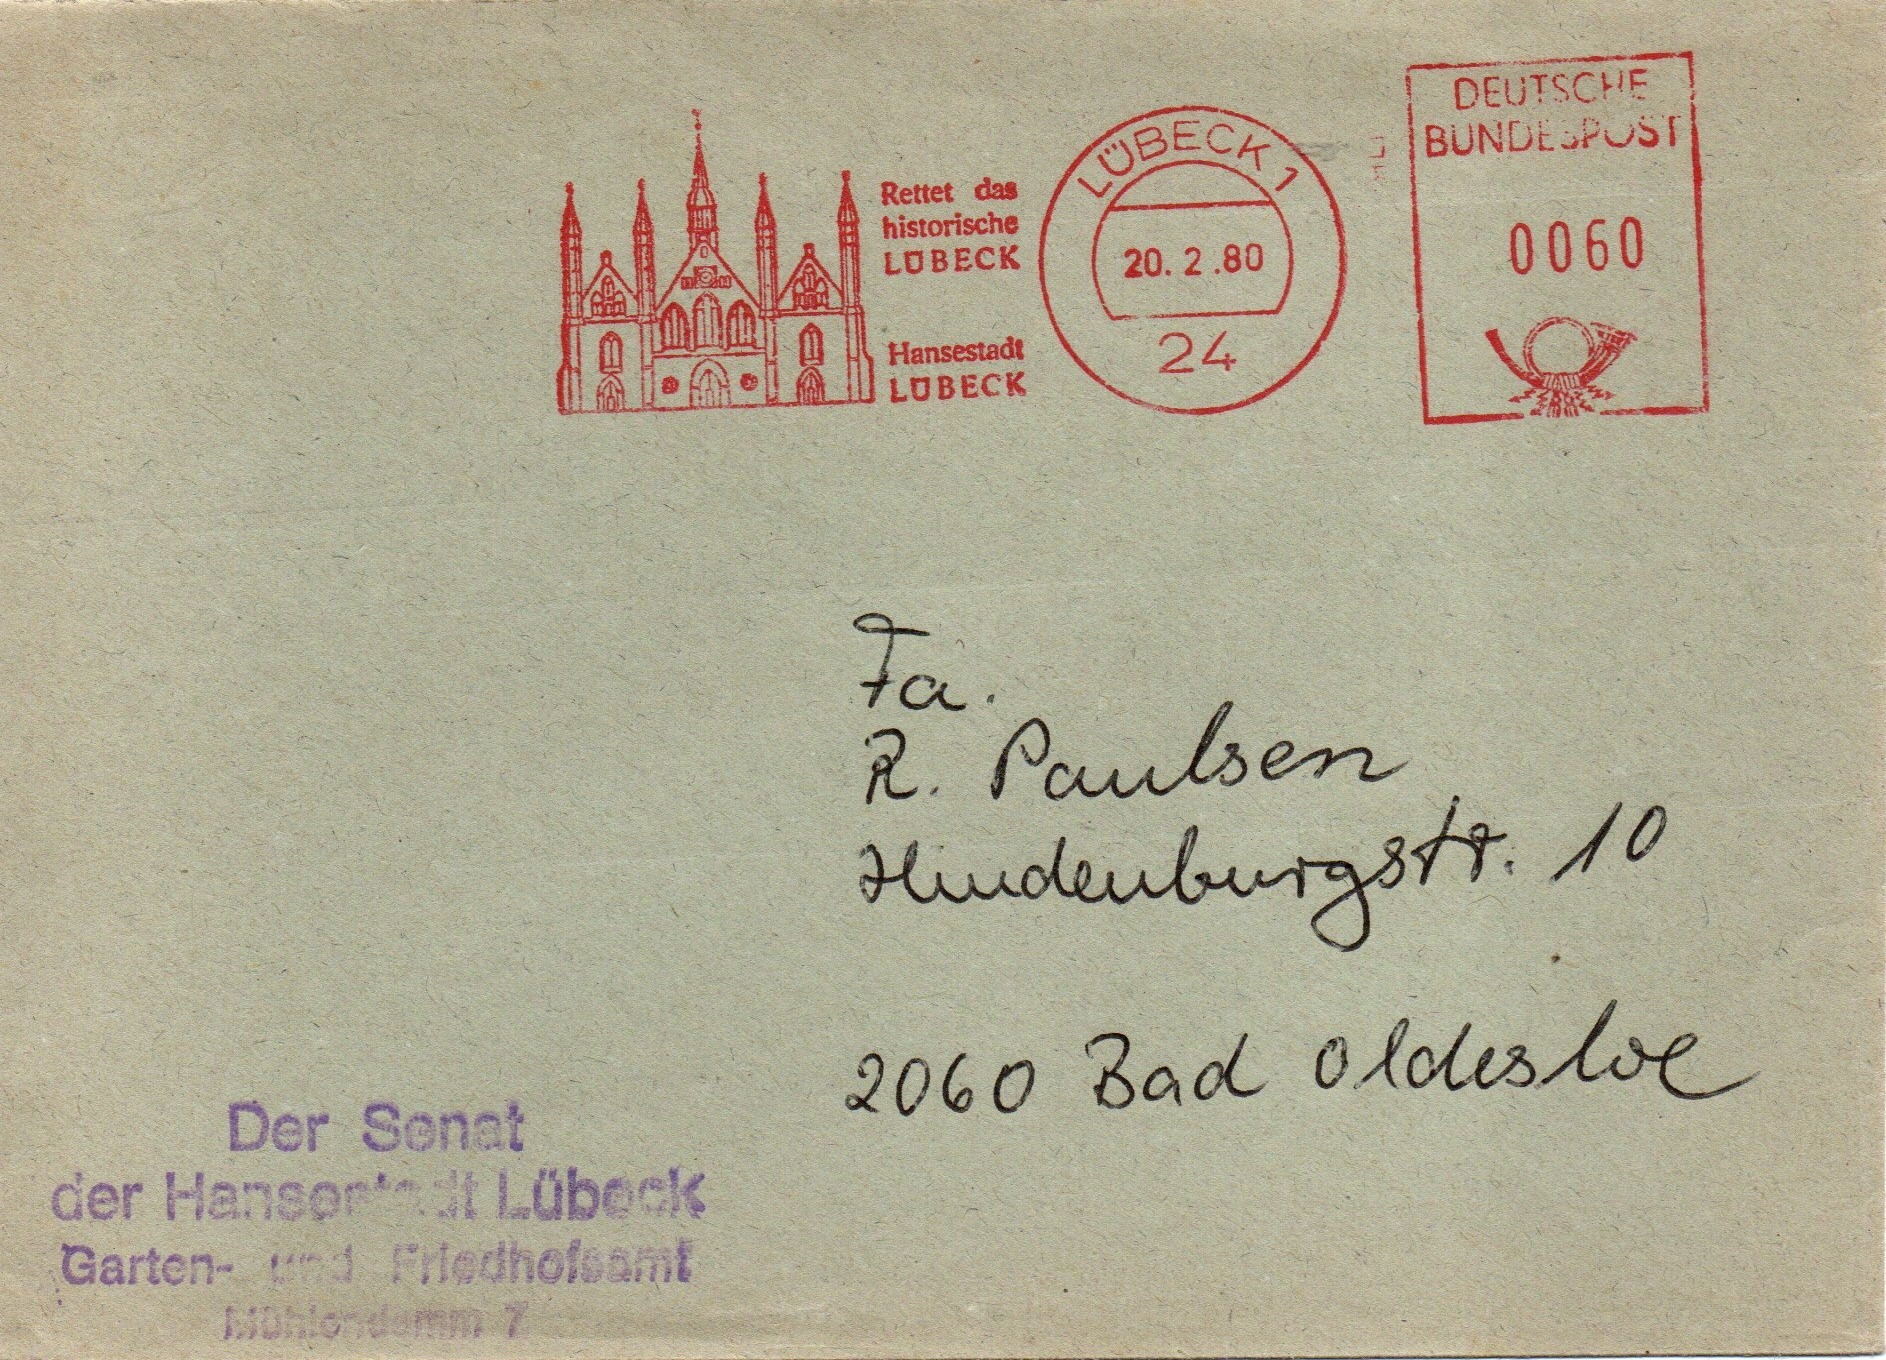 Rettet das
historische
LÜBECK
Hansestadt
LÜBECK
LÜBECK 1
20. 2 .80
24
DEUTSCHE
BUNDESPOST
0060
Fa.
R. Paulsen
Hindenburgstr. 10
2060 Bad Oldesloe
Der Senat
der Hansestadt Lübeck
Garten- und Friedhofsamt
Mühlendamm 7